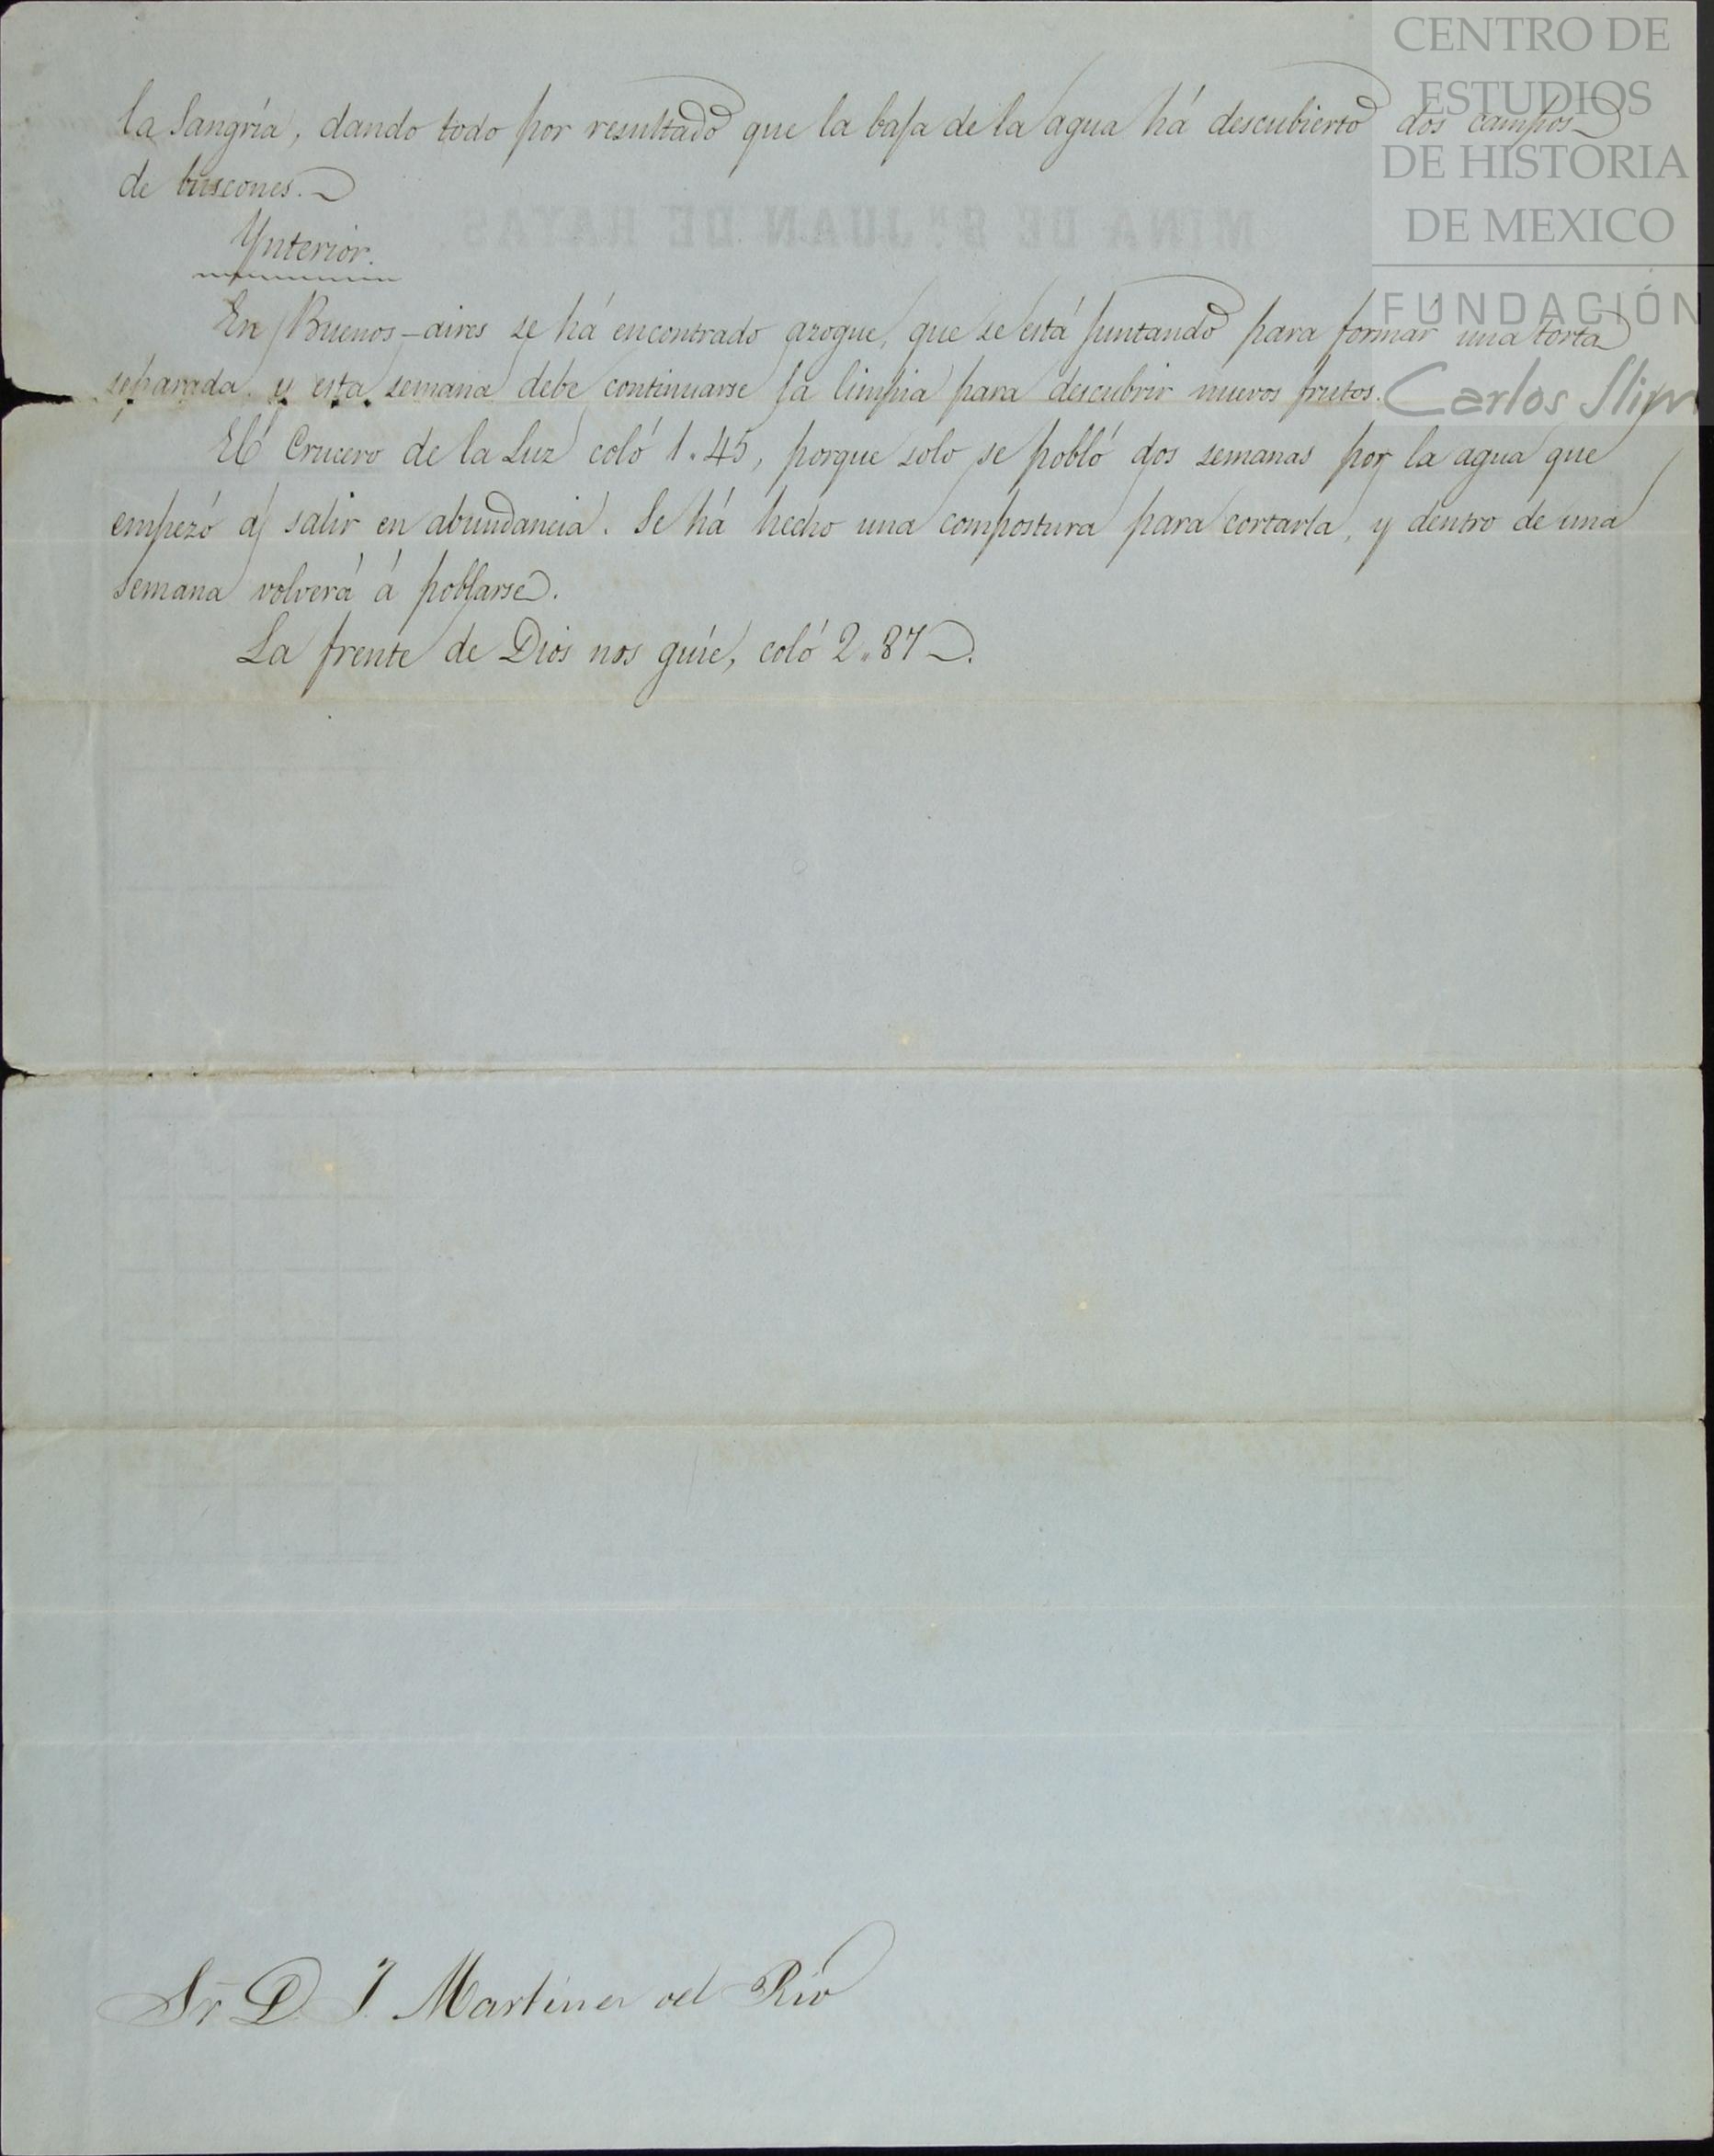 la Sangría, dando todo por resultado que la baja de la agua há descubierto dos campos
de buscones.
Ynterior.
En Buenos-aires se há encontrado azogue, que se está juntando para formar una torta
separada, y esta semana debe continuarse la limpia para descubrir nuevos frutos.
El Crucero de la Luz coló 1.45, porque solo se pobló dos semanas por la agua que
empezó á salir en abundancia. Se há hecho una compostura para cortarla, y dentro de una
semana volverá á poblarse.
La frente de Dios nos guíe, coló 2.87.
Sr D. J. Martinez del Rio
MINA DE Sn JUAN DE RAYAS
CENTRO DE
ESTUDIOS
DE HISTORIA
DE MEXICO
FUNDACIÓN
Carlos Slim